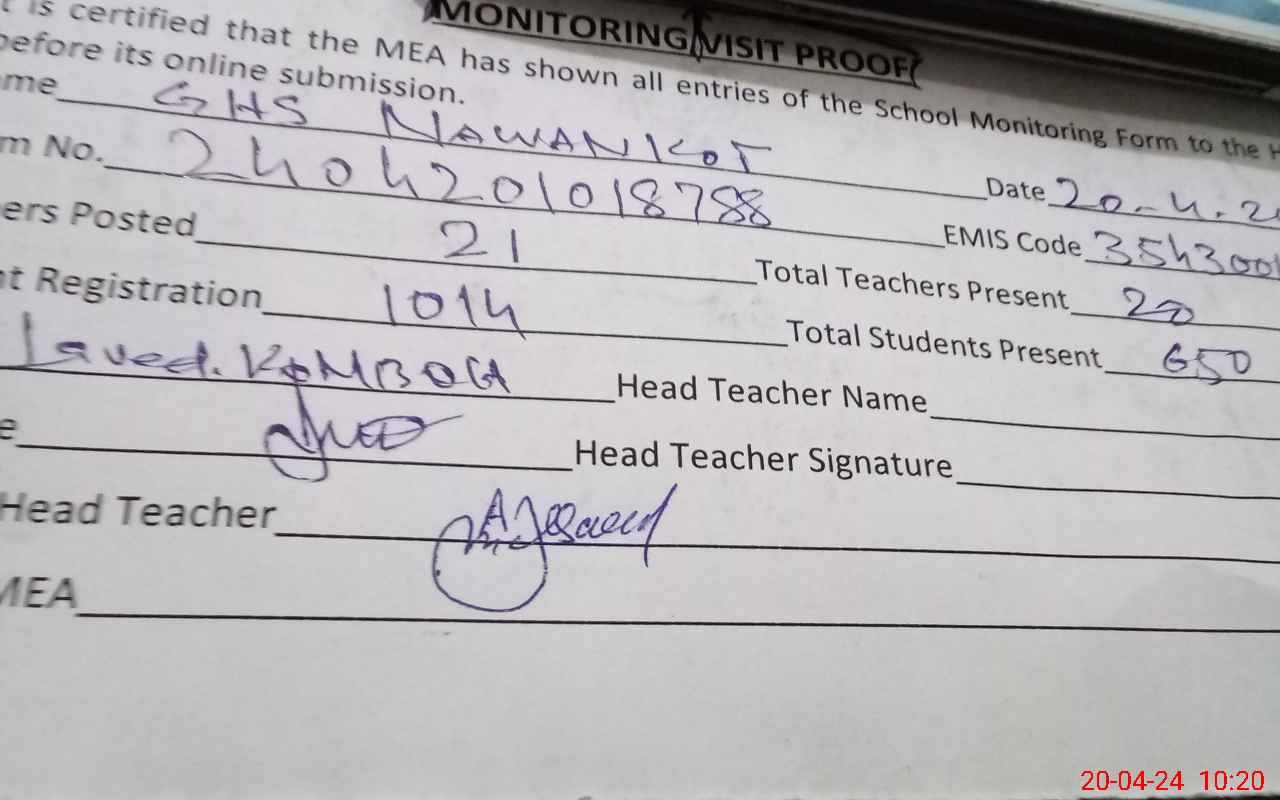 MONITORING VISIT PROOF
t is certified that the MEA has shown all entries of the School Monitoring Form to the H
before its online submission.
me GHS NAWANKOT Date 20-4-2
m No. 2404201018788 EMIS Code 354300
ers Posted 21 Total Teachers Present 20
nt Registration 1014 Total Students Present 650
Javed. KAMBOH Head Teacher Name
e Head Teacher Signature
Head Teacher
MEA
20-04-24 10:20